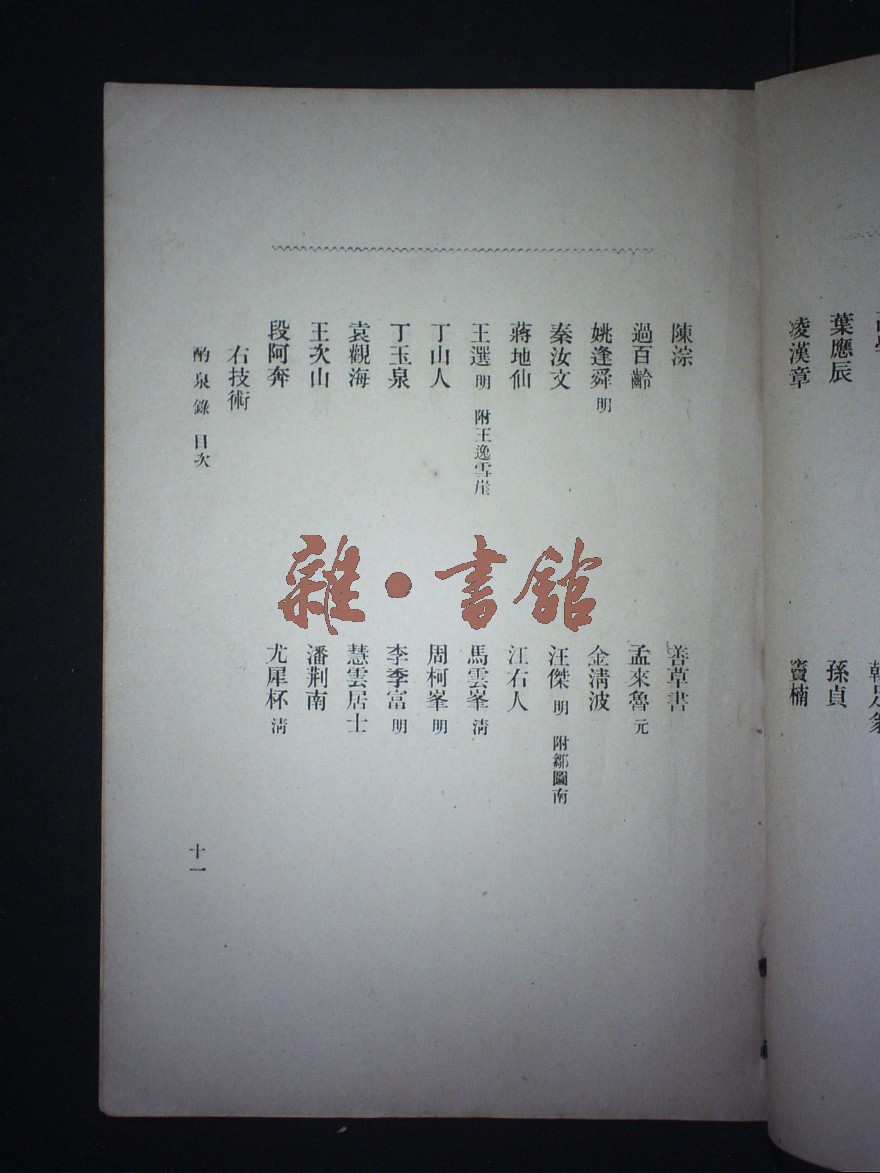 葉應辰
孫貞
凌漢章
竇楠
陳淙
善草書
過百齡
孟來魯 元
姚逢舜 明
金清波
秦汝文
汪傑 明 附鄒圖南
蔣地仙
江右人
王選 明 附王逸雪崖
馬雲峯 清
丁山人
周柯峯 明
丁玉泉
李季富 明
袁觀海
慧雲居士
王次山
潘荆南
段阿奔
尤犀杯 清
右技術
酌泉錄 目次
十一
雜·書館